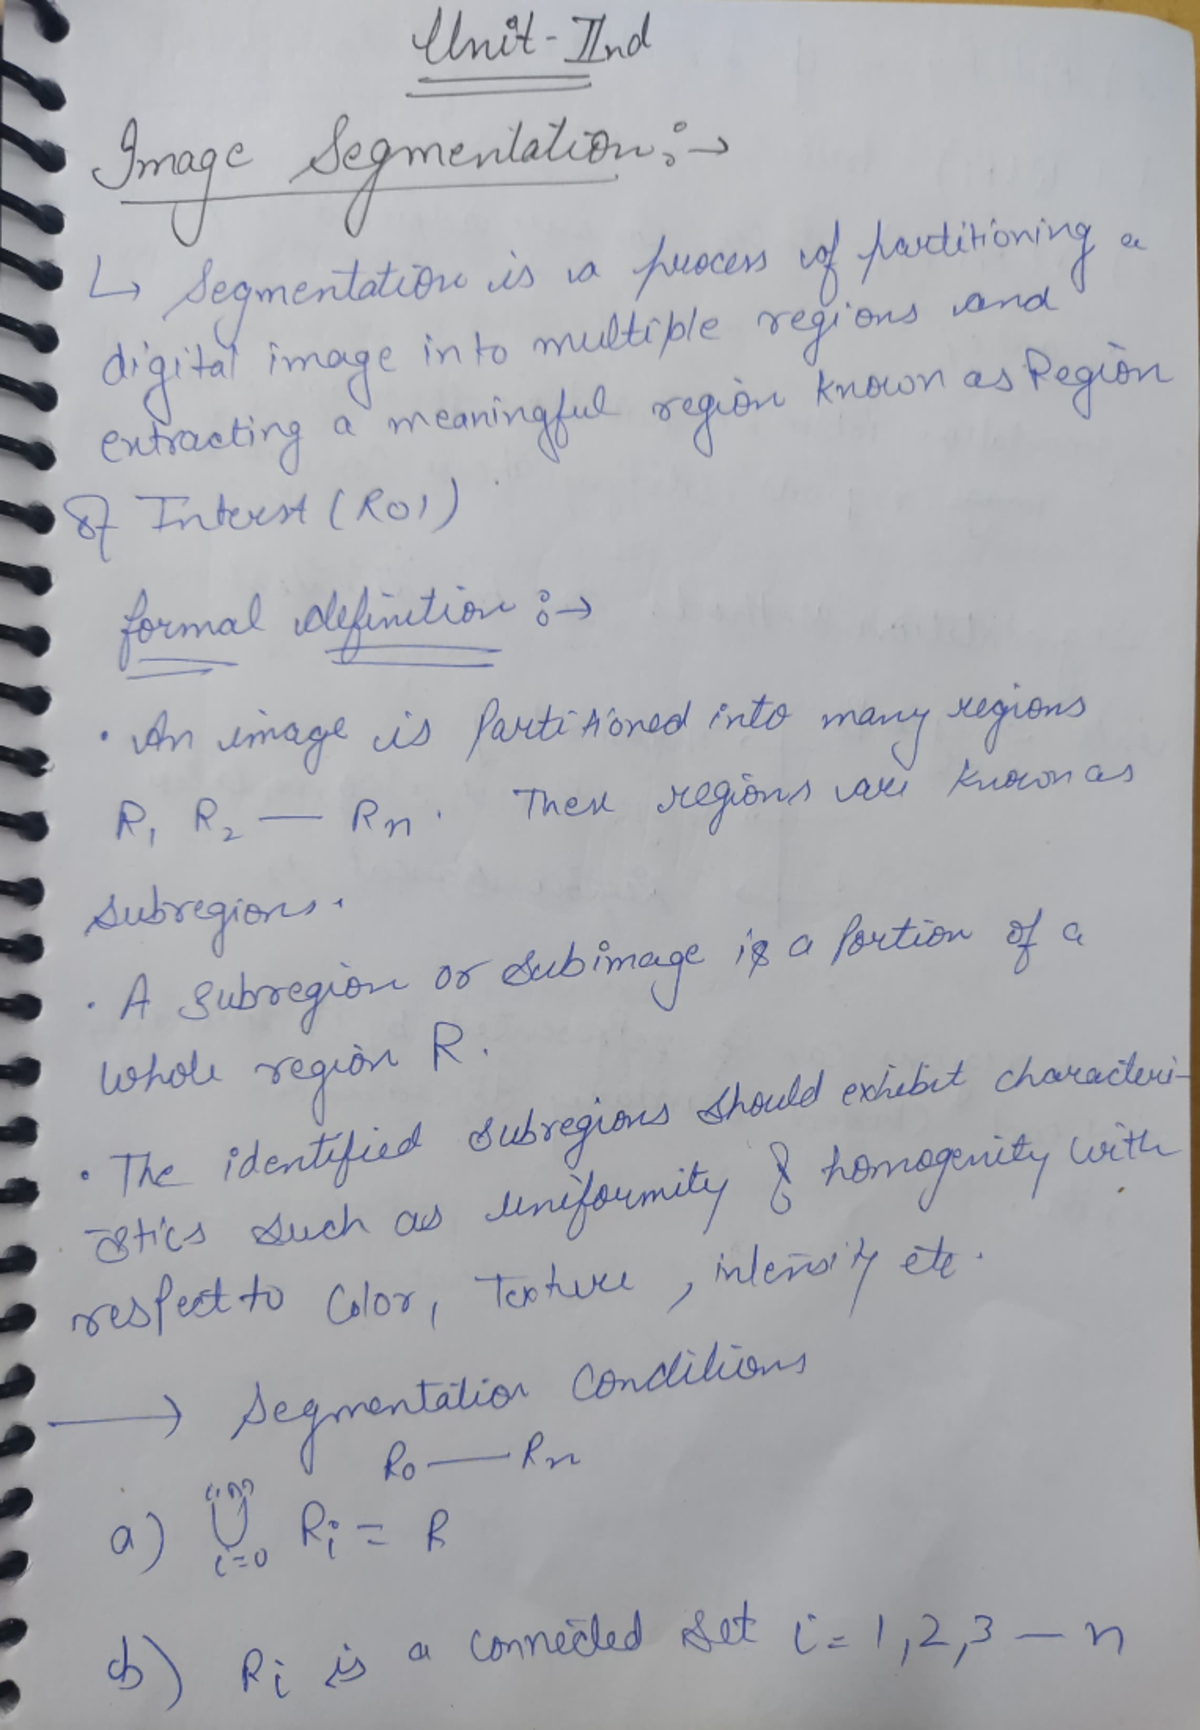 Unit-IInd
Image Segmentation :→
↳ Segmentation is a process of partitioning a
digital image into multiple regions and
extracting a meaningful region known as Region
of Interst (ROI)
formal definition :→
• An image is Partitioned into many regions
R₁ R₂ — Rn. These regions are known as
subregions.
• A subregion or subimage is a Portion of a
whole region R.
• The identified subregions should exhibit characteri-
stics such as uniformity & homogenity with
respect to Color, Texture, intensity etc.
→ Segmentation Conditions
R₀ — Rn
a) ⋃ᵢ₌₀ⁿ Rᵢ = R
b) Rᵢ is a connected set i = 1,2,3 — n